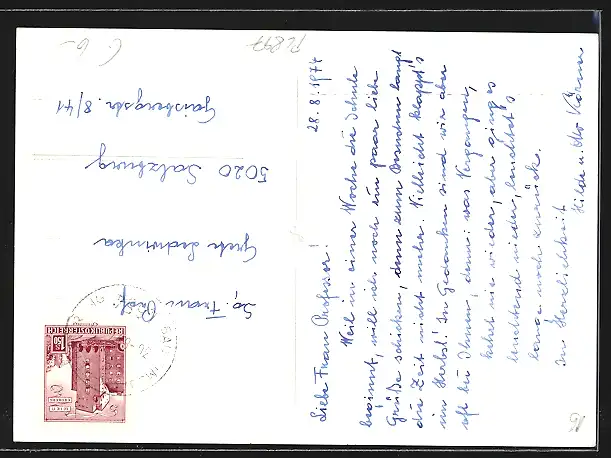 28.8.1974
Liebe Frau Professor!
Weil in einer Woche die Schule
beginnt, will ich noch ein paar liebe
Grüße schicken, denn zum Besuchen langt
die Zeit nicht mehr. Vielleicht klappt's
im Herbst! In Gedanken sind wir aber
oft bei Ihnen, denn: was Vergangen,
kehrt nie wieder, aber ging es
leuchtend nieder, leuchtet's
lange noch zurück.
In Herzlichkeit
Hilde u. Otto Körner
So, Frau Prof.
Grete
5020 Salzburg
Gaisbergstr. 8/41
REPUBLIK ÖSTERREICH
1.50
16